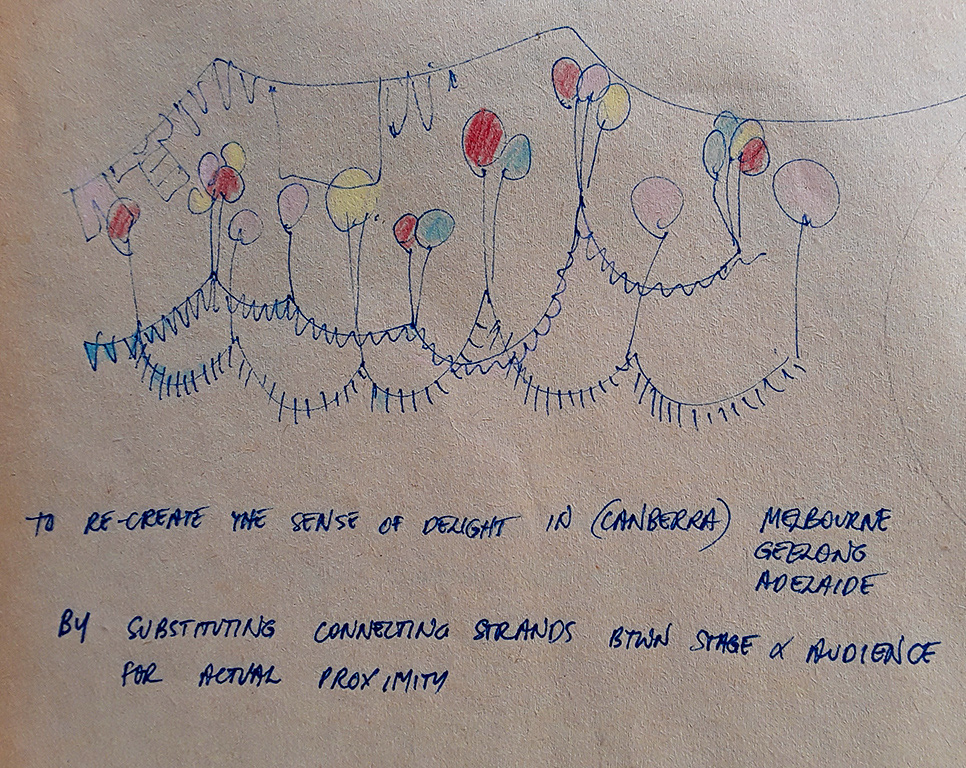 TO RE-CREATE THE SENSE OF DELIGHT IN (CANBERRA) MELBOURNE
GEELONG
ADELAIDE
BY SUBSTITUTING CONNECTING STRANDS BTWN STAGE & AUDIENCE
FOR ACTUAL PROXIMITY